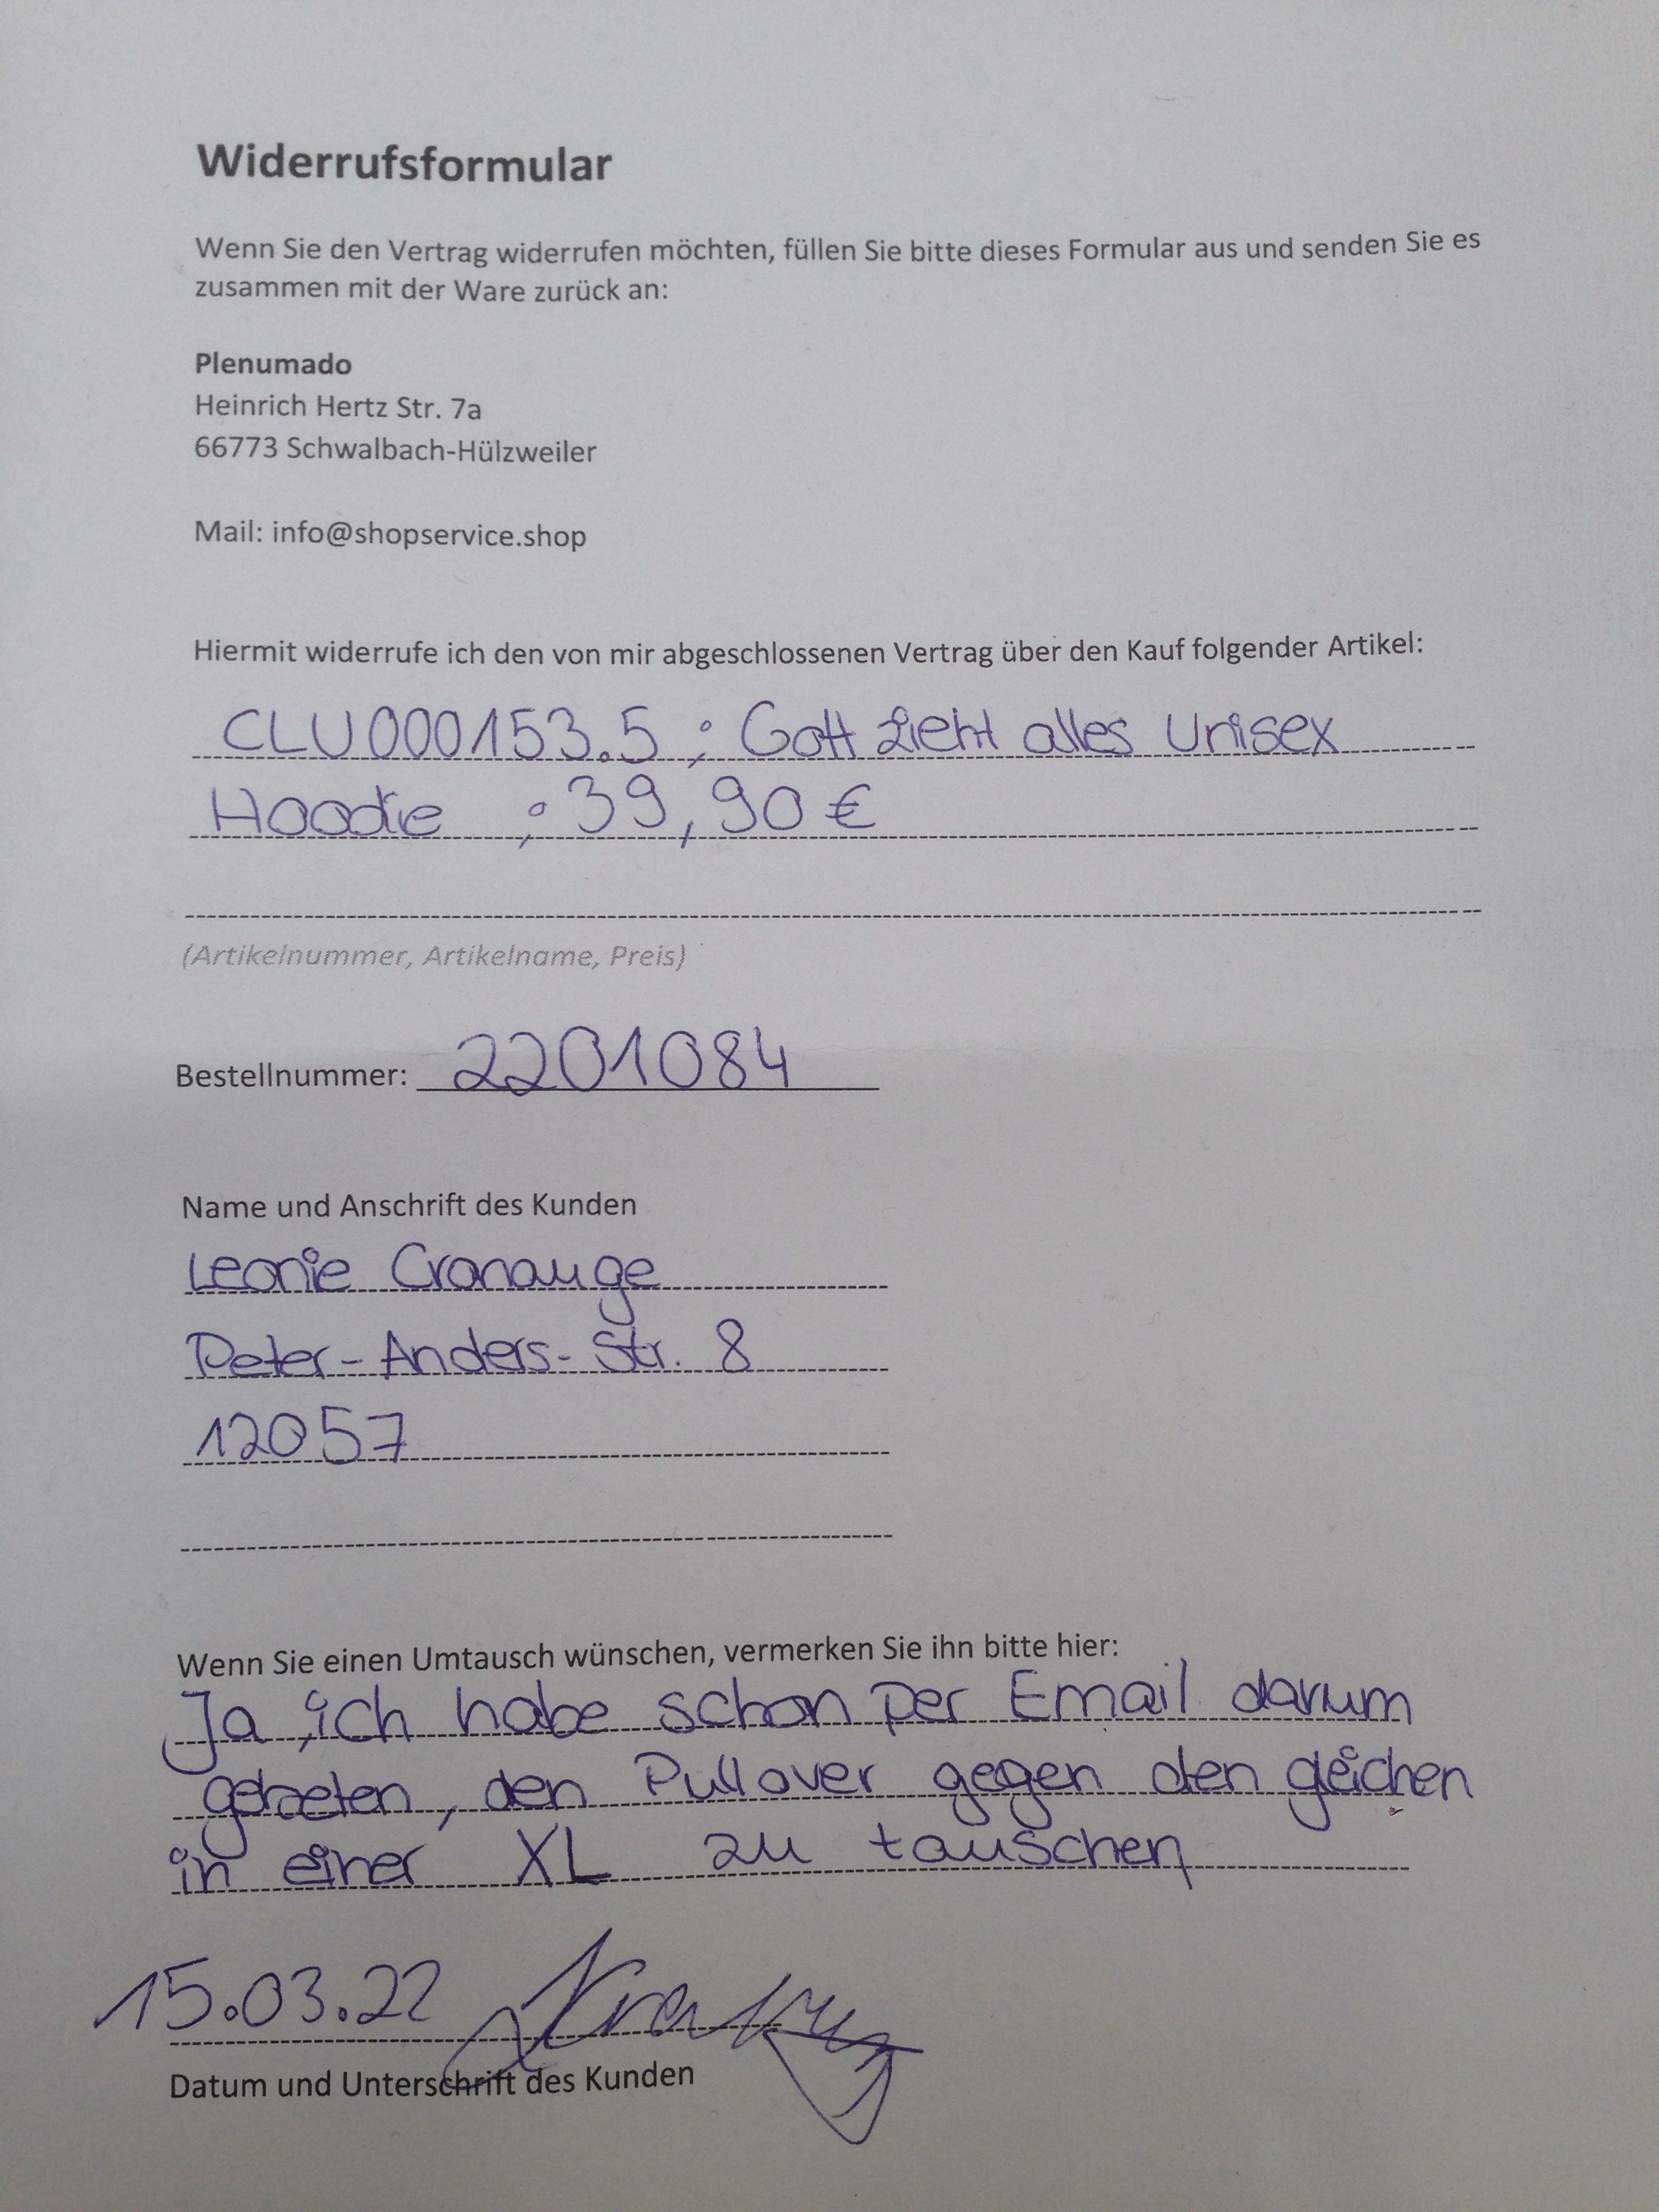 Widerrufsformular
Wenn Sie den Vertrag widerrufen möchten, füllen Sie bitte dieses Formular aus und senden Sie es
zusammen mit der Ware zurück an:
Plenumado
Heinrich Hertz Str. 7a
66773 Schwalbach-Hülzweiler
Mail: info@shopservice.shop
Hiermit widerrufe ich den von mir abgeschlossenen Vertrag über den Kauf folgender Artikel:
CLU000153.5 ; Gott zieht alles Unisex
Hoodie ; 39,90 €
(Artikelnummer, Artikelname, Preis)
Bestellnummer: 2201084
Name und Anschrift des Kunden
Leonie Cranauge
Peter-Anders-Str. 8
12057
Wenn Sie einen Umtausch wünschen, vermerken Sie ihn bitte hier:
Ja, ich habe schon per Email darum
gebeten, den Pullover gegen den gleichen
in einer XL zu tauschen
15.03.22
Datum und Unterschrift des Kunden